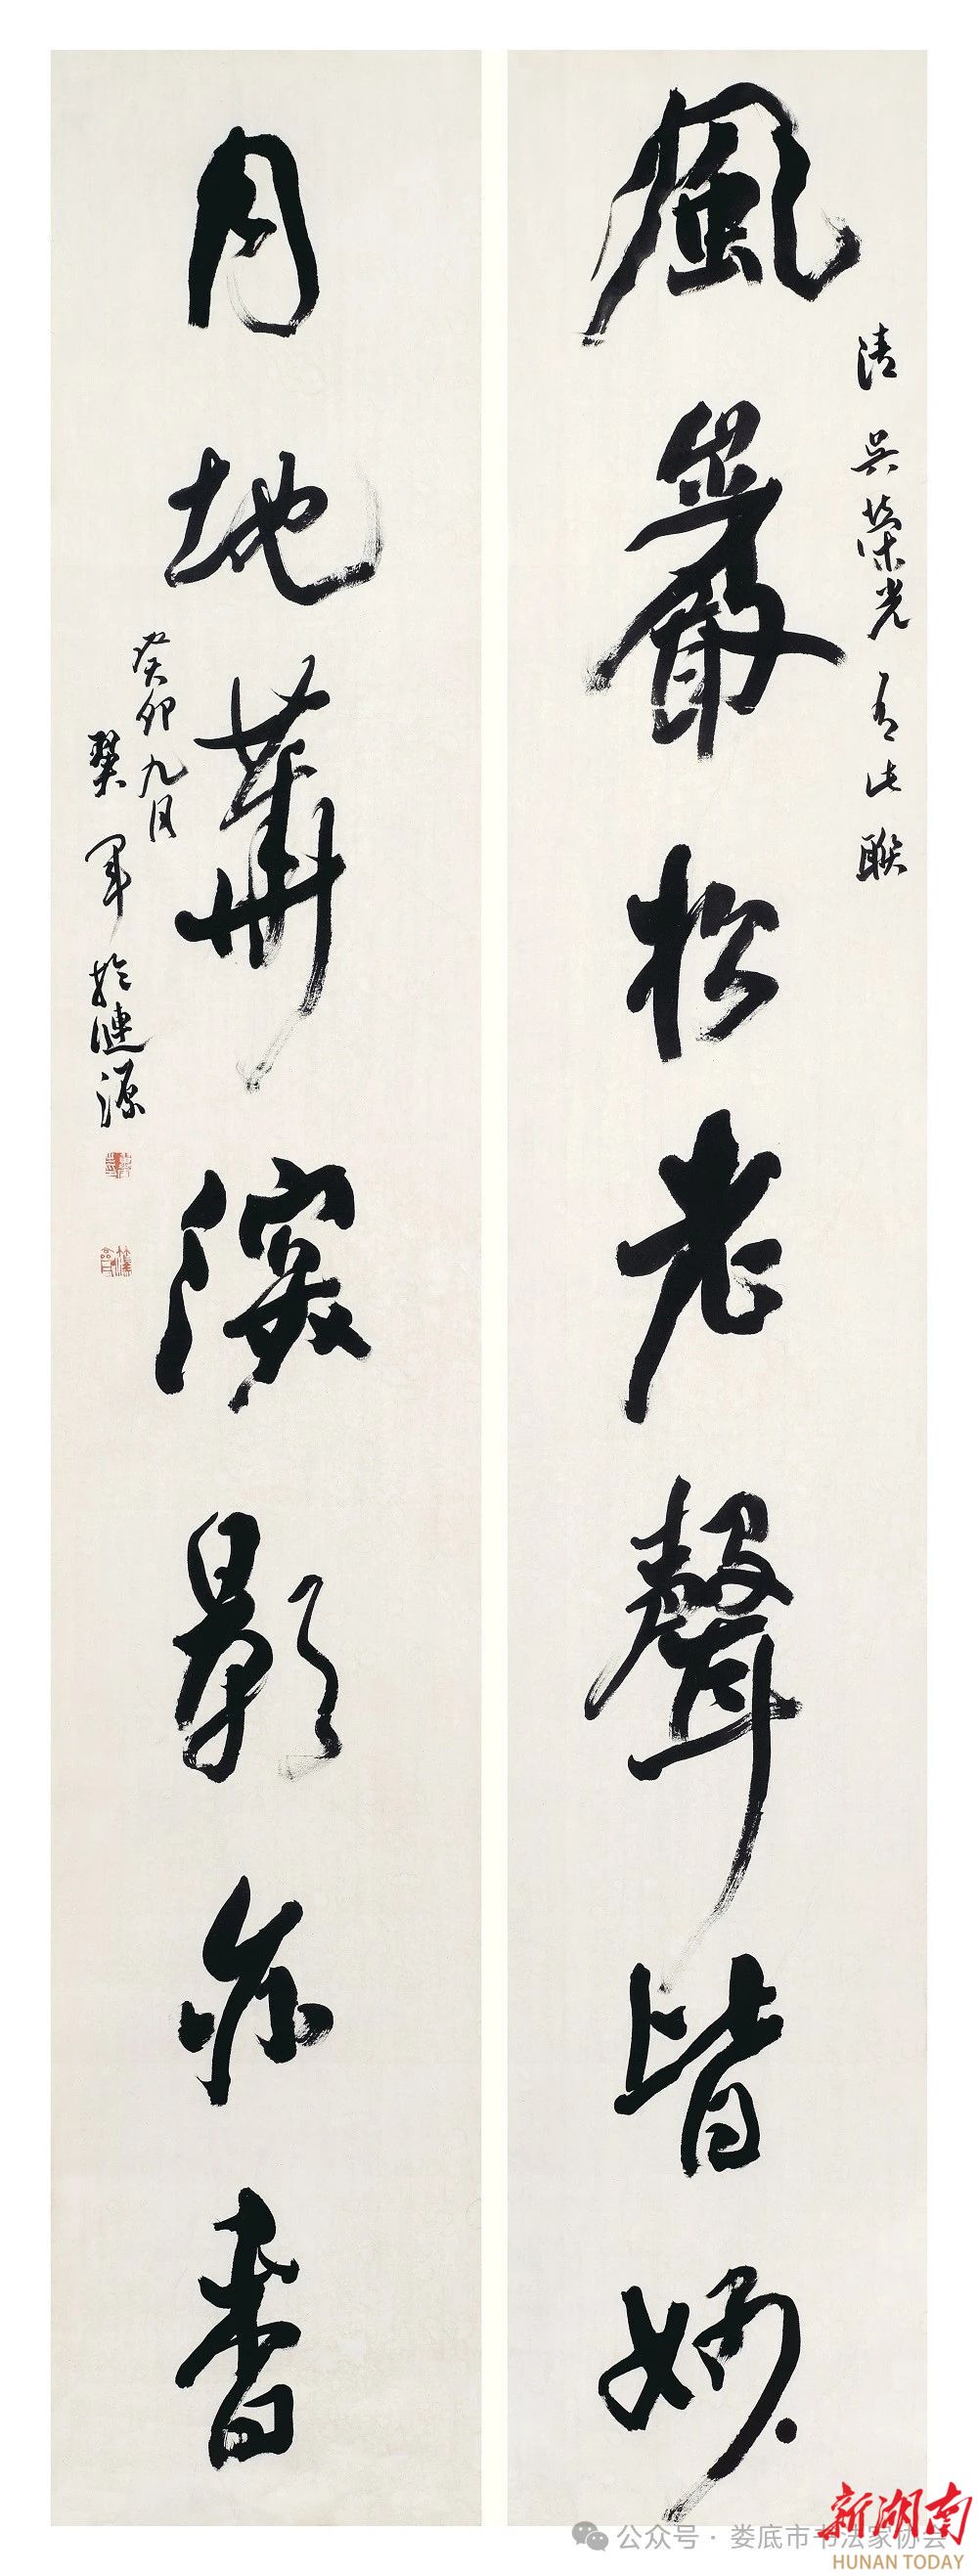 風巖松老聲皆妙
清吳榮光有此聯
月地華深影亦香
癸卯九月
軍於漣源
公众号 · 娄底市书法家协会
新湖南
HUNAN TODAY